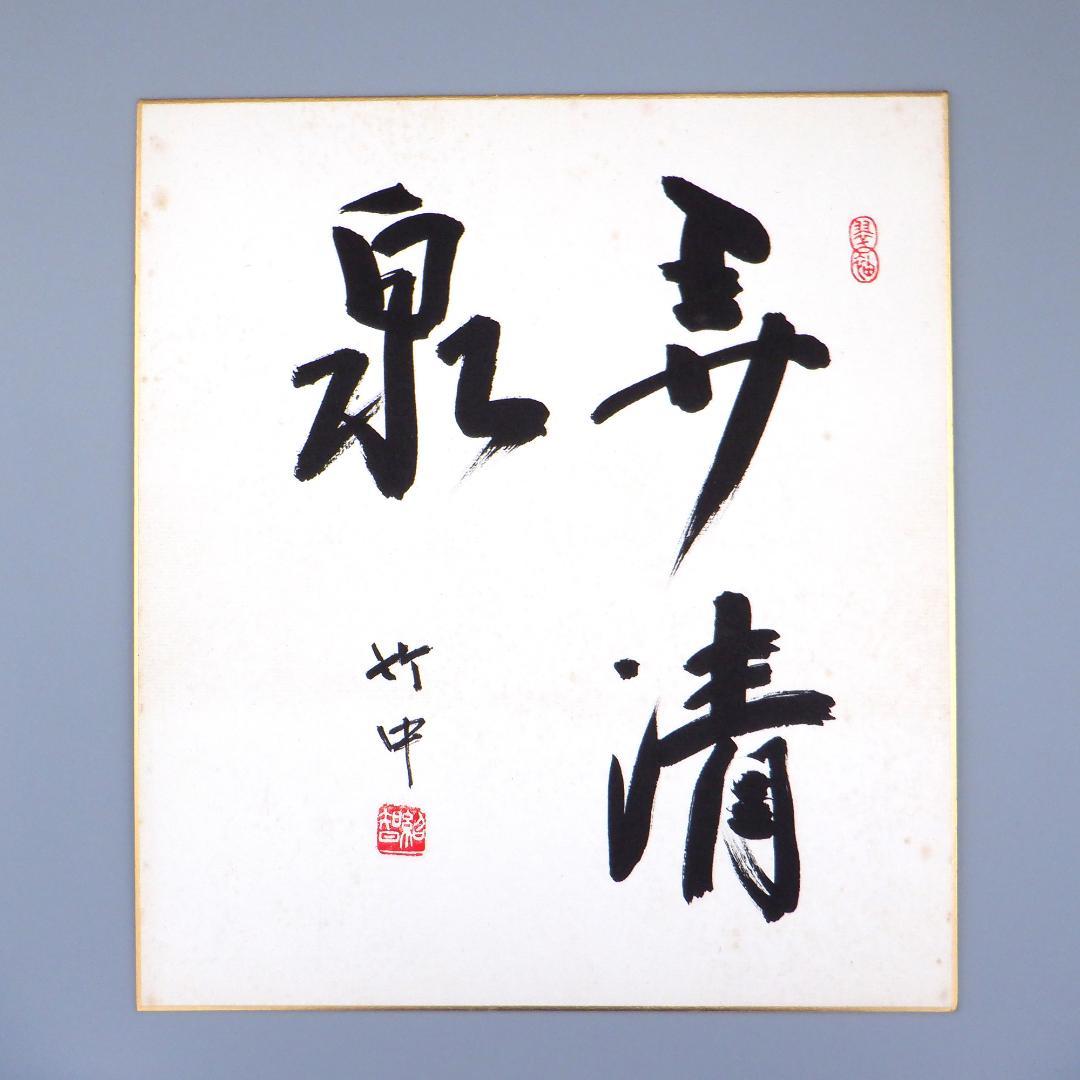 弄清
泉
竹中